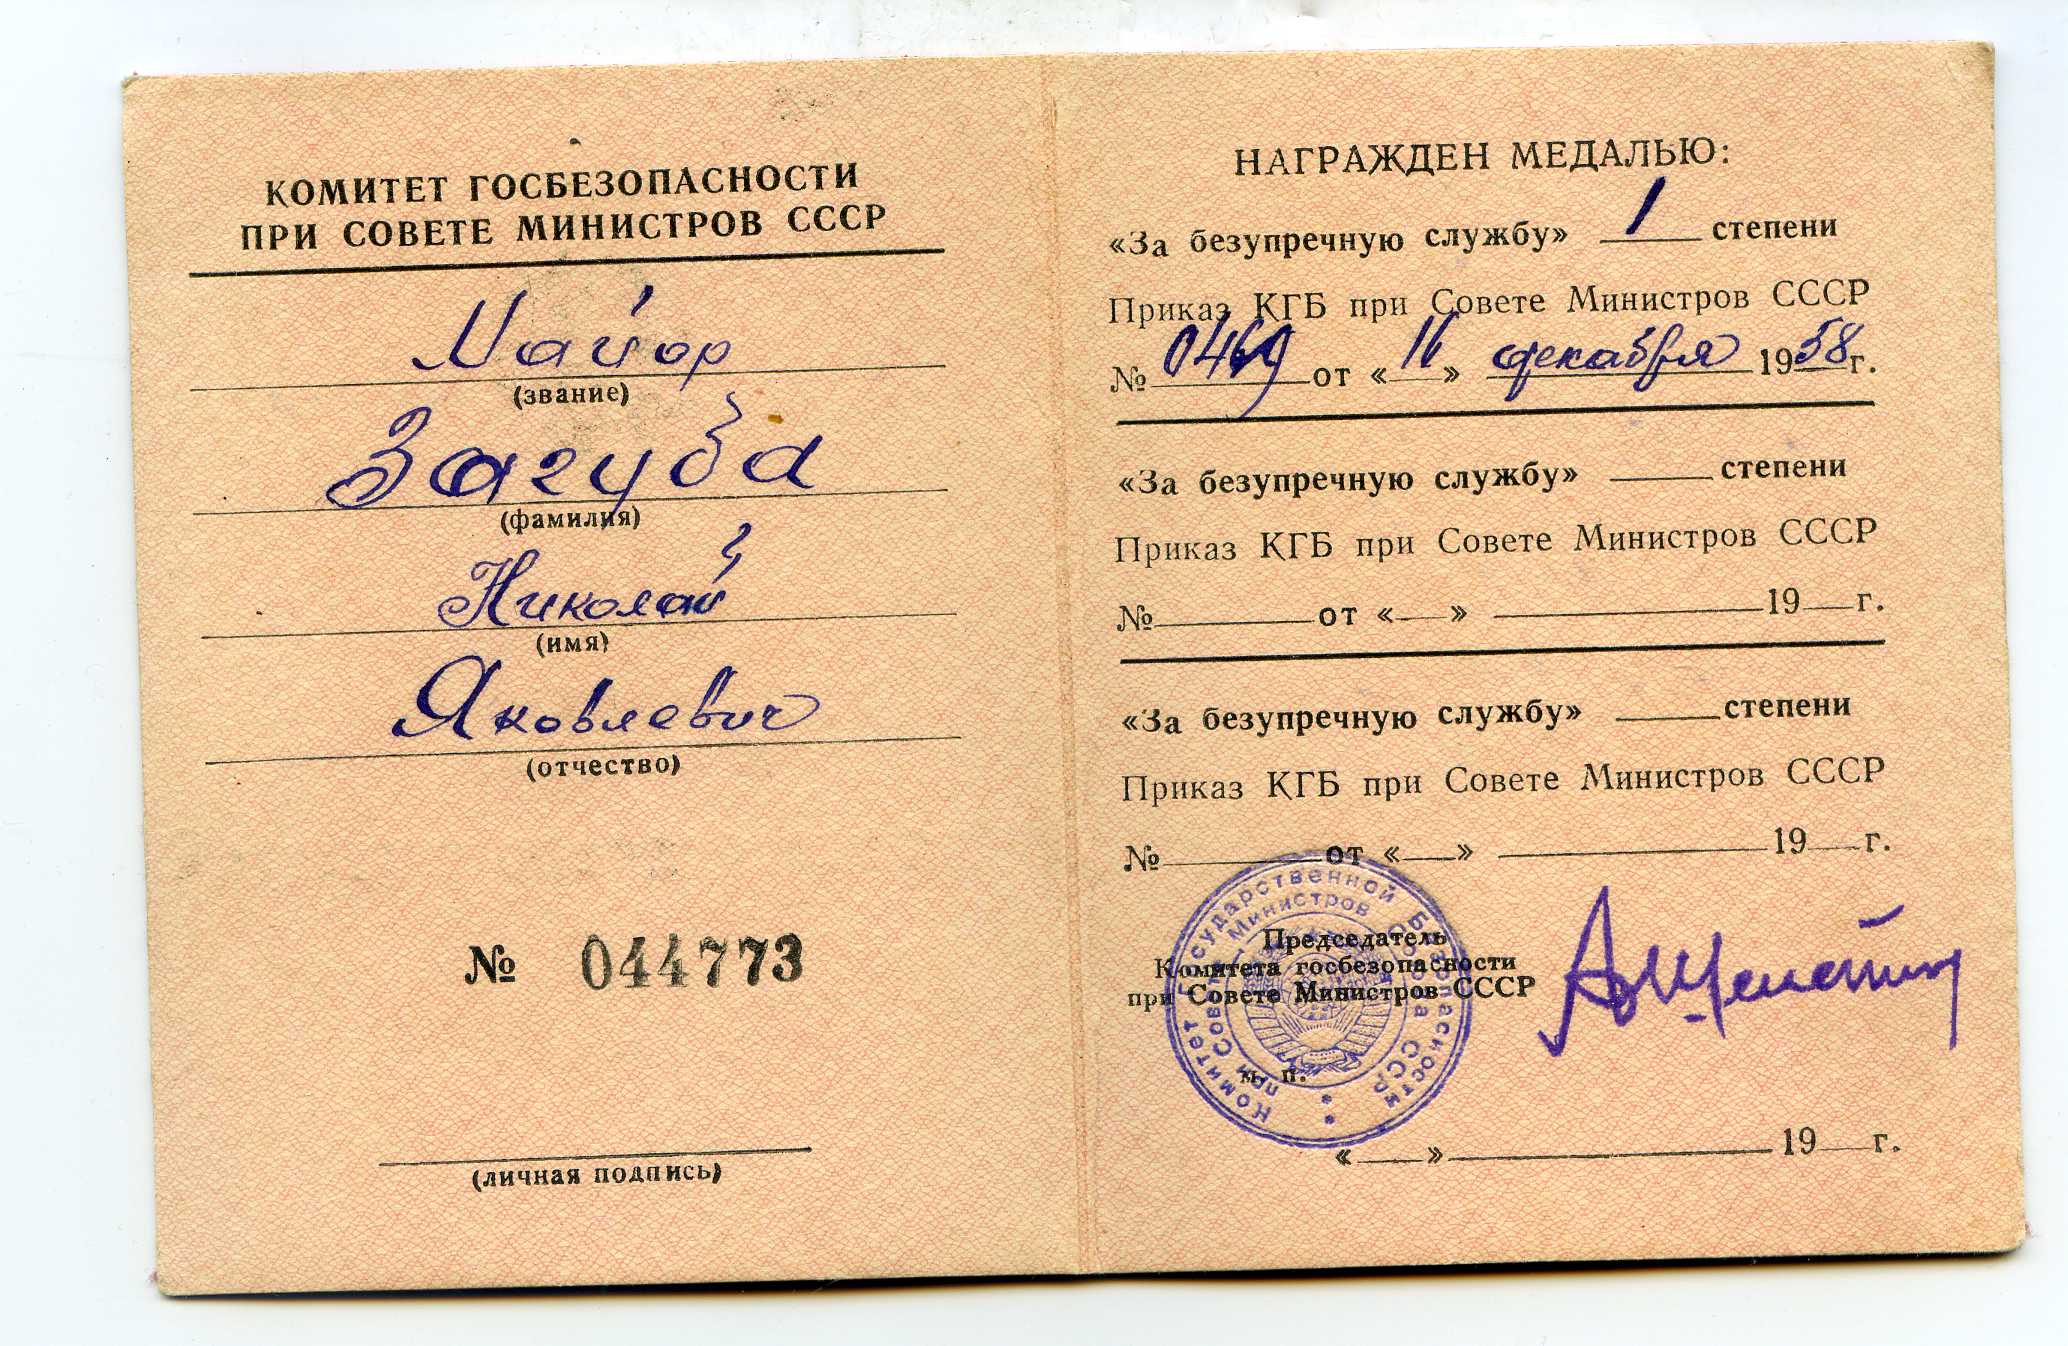 КОМИТЕТ ГОСБЕЗОПАСНОСТИ
ПРИ СОВЕТЕ МИНИСТРОВ СССР
Майор
(звание)
Загуба
(фамилия)
Николай
(имя)
Яковлевич
(отчество)
№ 044773
(личная подпись)
НАГРАЖДЕН МЕДАЛЬЮ:
«За безупречную службу» 1 степени
Приказ КГБ при Совете Министров СССР
№ 0469 от «16» декабря 1958 г.
«За безупречную службу» ____ степени
Приказ КГБ при Совете Министров СССР
№ ____ от «__» ____ 19__ г.
«За безупречную службу» ____ степени
Приказ КГБ при Совете Министров СССР
№ ____ от «__» ____ 19__ г.
Председатель
Комитета госбезопасности
при Совете Министров СССР
А Шелепин
м. п.
Комитет Государственной Безопасности
при Совете Министров Союза ССР
«__» ____ 19__ г.